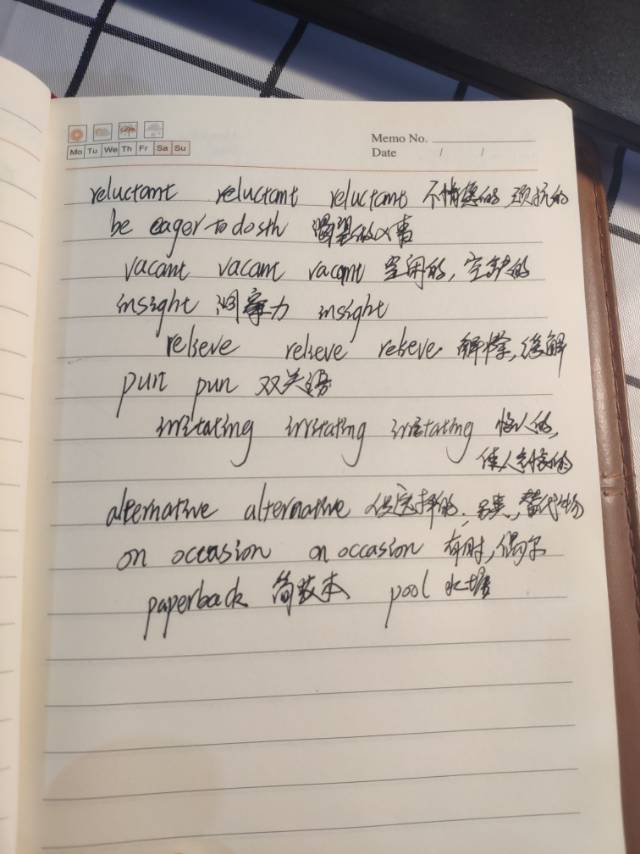 Mo Tu We Th Fr Sa Su
Memo No.
Date / /
reluctant reluctant reluctant 不情愿的 顽抗的
be eager to do sth 渴望的做事
vacant vacant vacant 空闲的,空缺的
insight 洞察力 insight
relieve relieve relieve 解除,缓解
pun pun 双关语
irritating irritating irritating 恼人的,
使人烦恼的
alternative alternative 供选择的,另类,替代物
on occasion on occasion 有时,偶尔
paperback 简装本 pool 水塘